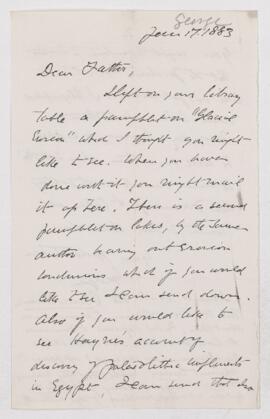 George
June 17. 1883
Dear Father,
I left on your library
table a pamphlet on "Glacial
Erosion" which I thought you might
like to see. When you have
done with it you might mail
it up here. There is a second
pamphlet on lakes, by the same
author bearing out Erosion
conclusions which if you would
like to see I can send down.
Also if you would like to
see Haynes's account of
discovery of palaeolithic implements
in Egypt, I can send that also